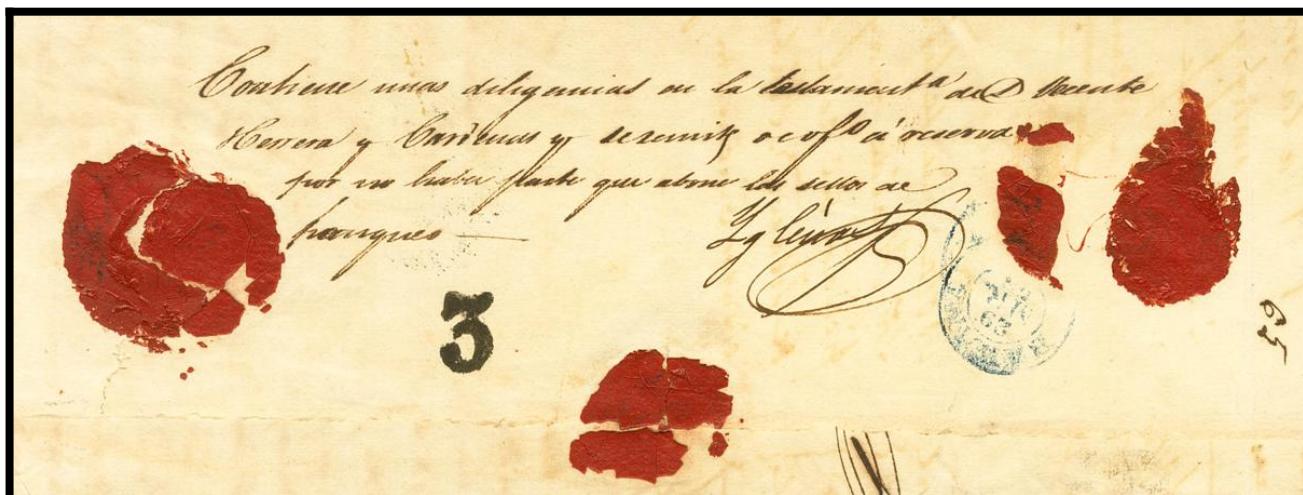 Contiene unas diligencias en la testament.ª de D Vicente
Herrera y Cárdenas y se remite de of.º á reserva
por no haber parte que abone los sellos de
franqueo
Yglesias
3
59